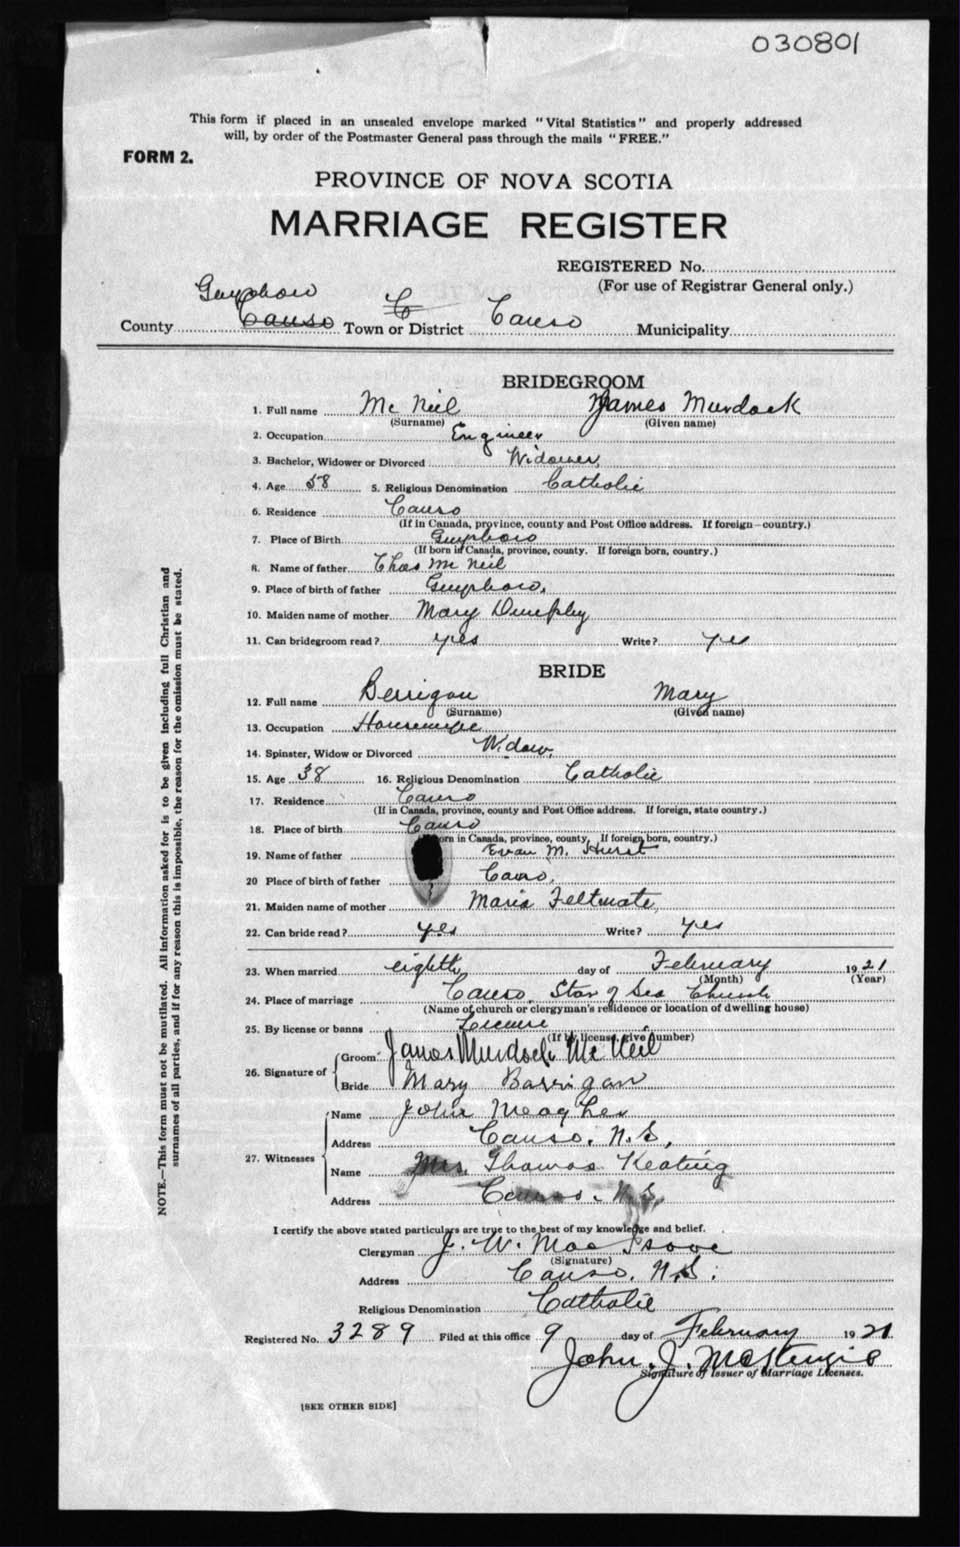 030801
This form if placed in an unsealed envelope marked "Vital Statistics" and properly addressed
will, by order of the Postmaster General pass through the mails "FREE."
FORM 2.
PROVINCE OF NOVA SCOTIA
MARRIAGE REGISTER
REGISTERED No.
(For use of Registrar General only.)
Guysboro
County Canso Town or District Canso Municipality
BRIDEGROOM
1. Full name Mc Neil James Murdock
(Surname) (Given name)
2. Occupation Engineer
3. Bachelor, Widower or Divorced Widower
4. Age 58 5. Religious Denomination Catholic
6. Residence Canso
(If in Canada, province, county and Post Office address. If foreign—country.)
7. Place of Birth Guysboro
(If born in Canada, province, county. If foreign born, country.)
8. Name of father Chas Mc Neil
9. Place of birth of father Guysboro,
10. Maiden name of mother Mary Dunphy
11. Can bridegroom read? yes Write? yes
BRIDE
12. Full name Berrigan Mary
(Surname) (Given name)
13. Occupation Housewife
14. Spinster, Widow or Divorced Widow,
15. Age 38 16. Religious Denomination Catholic
17. Residence Canso
(If in Canada, province, county and Post Office address. If foreign, state country.)
18. Place of birth Canso
born in Canada, province, county, If foreign born, country.)
19. Name of father Evan M. Hurst
20 Place of birth of father Canso,
21. Maiden name of mother Maria Feltmate,
22. Can bride read? yes Write? yes
23. When married eighth day of February 1921
(Month) (Year)
24. Place of marriage Canso, Star of Sea Church
(Name of church or clergyman's residence or location of dwelling house)
25. By license or banns License
(If by license, give number)
26. Signature of Groom James Murdock Mc Neil
Bride Mary Barrigan
27. Witnesses Name John Meagher
Address Canso, N.S,
Name Mrs. Thomas Keating
Address Canso. N.S.
I certify the above stated particulars are true to the best of my knowledge and belief.
Clergyman J. W. Mac Isaac
(Signature)
Address Canso, N.S.
Religious Denomination Catholic
Registered No. 3289 Filed at this office 9 day of February 1921
John. J. McKenzie
Signature of Issuer of Marriage Licenses.
[SEE OTHER SIDE]
NOTE.—This form must not be mutilated. All information asked for is to be given including full Christian and
surnames of all parties, and if for any reason this is impossible, the reason for the omission must be stated.